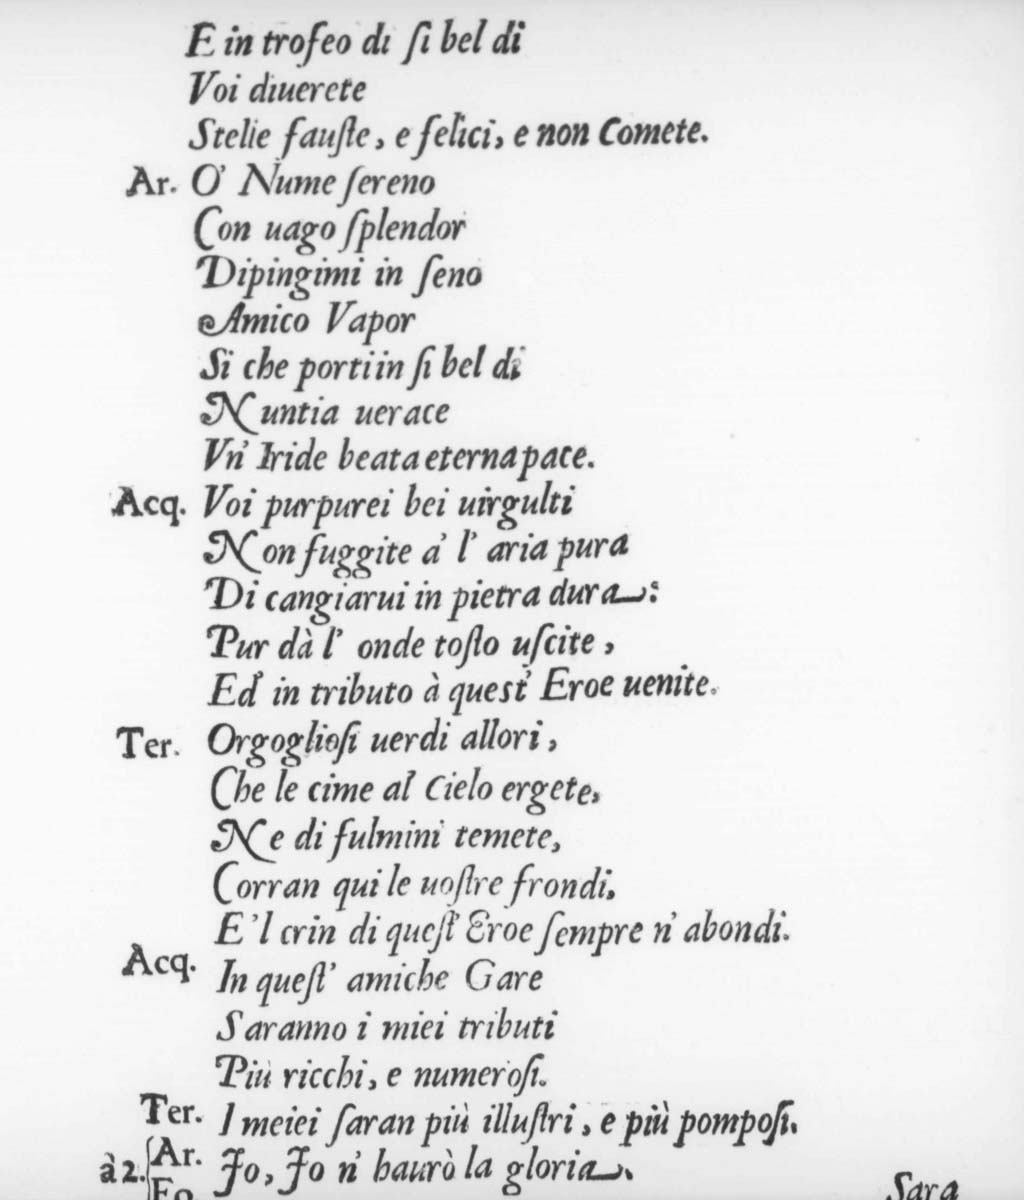 E in trofeo di ſi bel di
Voi diuerete
Stelle fauſte, e felici, e non Comete.
Ar. O' Nume ſereno
Con uago ſplendor
Dipingimi in ſeno
Amico Vapor
Si che porti in ſi bel di
Nuntia uerace
Vn' Iride beata eterna pace.
Acq. Voi purpurei bei uirgulti
Non fuggite a' l' aria pura
Di cangiarui in pietra dura:
Pur dà l' onde toſto uſcite,
Ed' in tributo à quest' Eroe uenite.
Ter. Orgoglioſi uerdi allori,
Che le cime al' Cielo ergete,
Ne di fulmini temete,
Corran qui le uoſtre frondi,
E'l crin di queſt' Eroe ſempre n' abondi.
Acq. In queſt' amiche Gare
Saranno i miei tributi
Più ricchi, e numeroſi.
Ter. I meiei ſaran più illuſtri, e più pompoſi.
à 2. Ar. Jo, Jo n' haurò la gloria.
Fo.
Sara